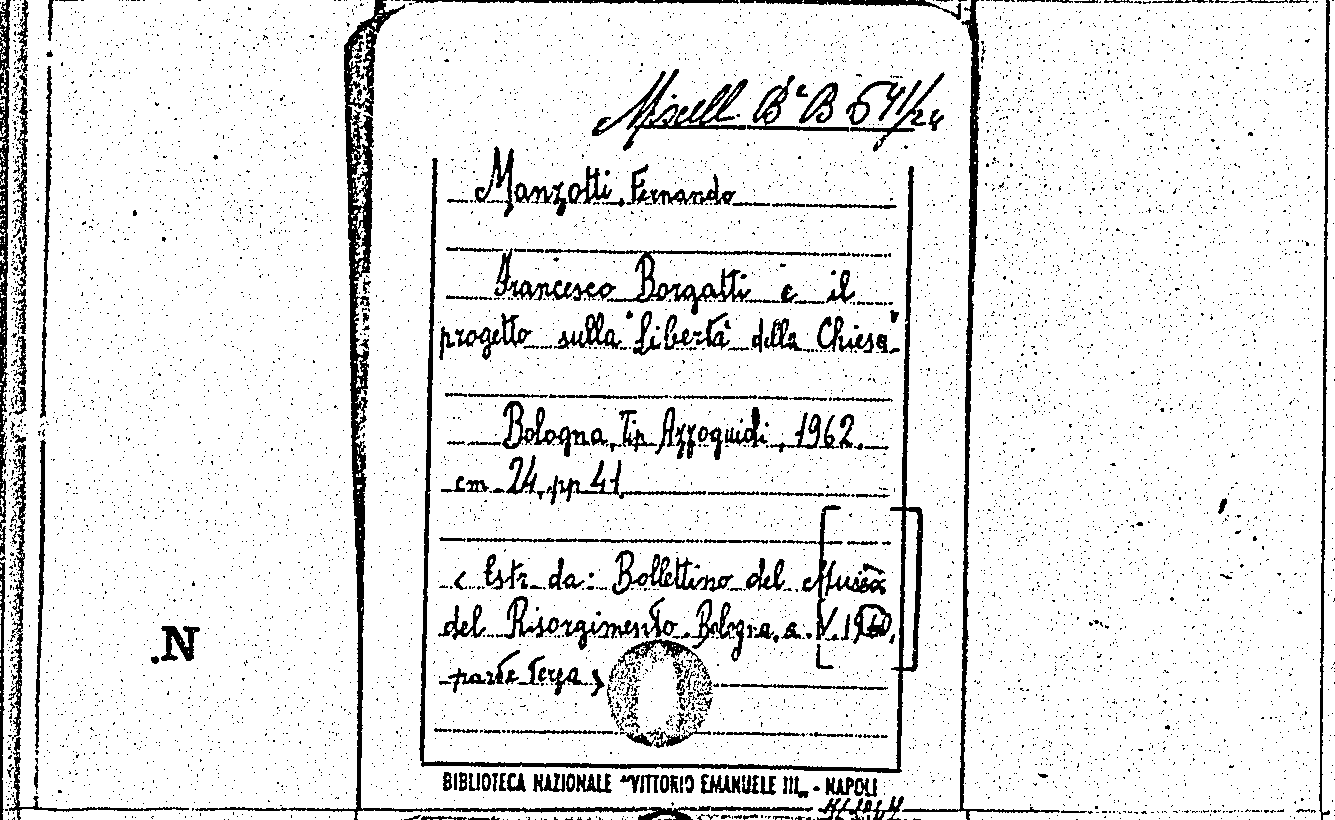 Miscell B^a B 541/24
Manzotti, Fernando
Francesco Borgatti e il
progetto sulla "Libertà della Chiesa"
Bologna, Tip. Azzoguidi, 1962.
cm. 24, pp. 41.
< Estr. da: Bollettino del Museo
del Risorgimento. Bologna, a. V. 1960,
parte terza >
.N
BIBLIOTECA NAZIONALE "VITTORIO EMANUELE III„ - NAPOLI